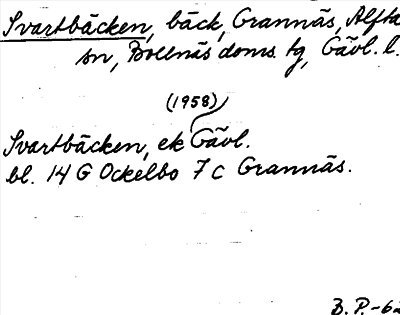 Svartbäcken, bäck, Grannäs, Alfta
sn, Bollnäs doms. tg, Gävl. l.
(1958)
Svartbäcken, ek Gävl.
bl. 14 G Ockelbo 7 c Grannäs.
B. P. -62